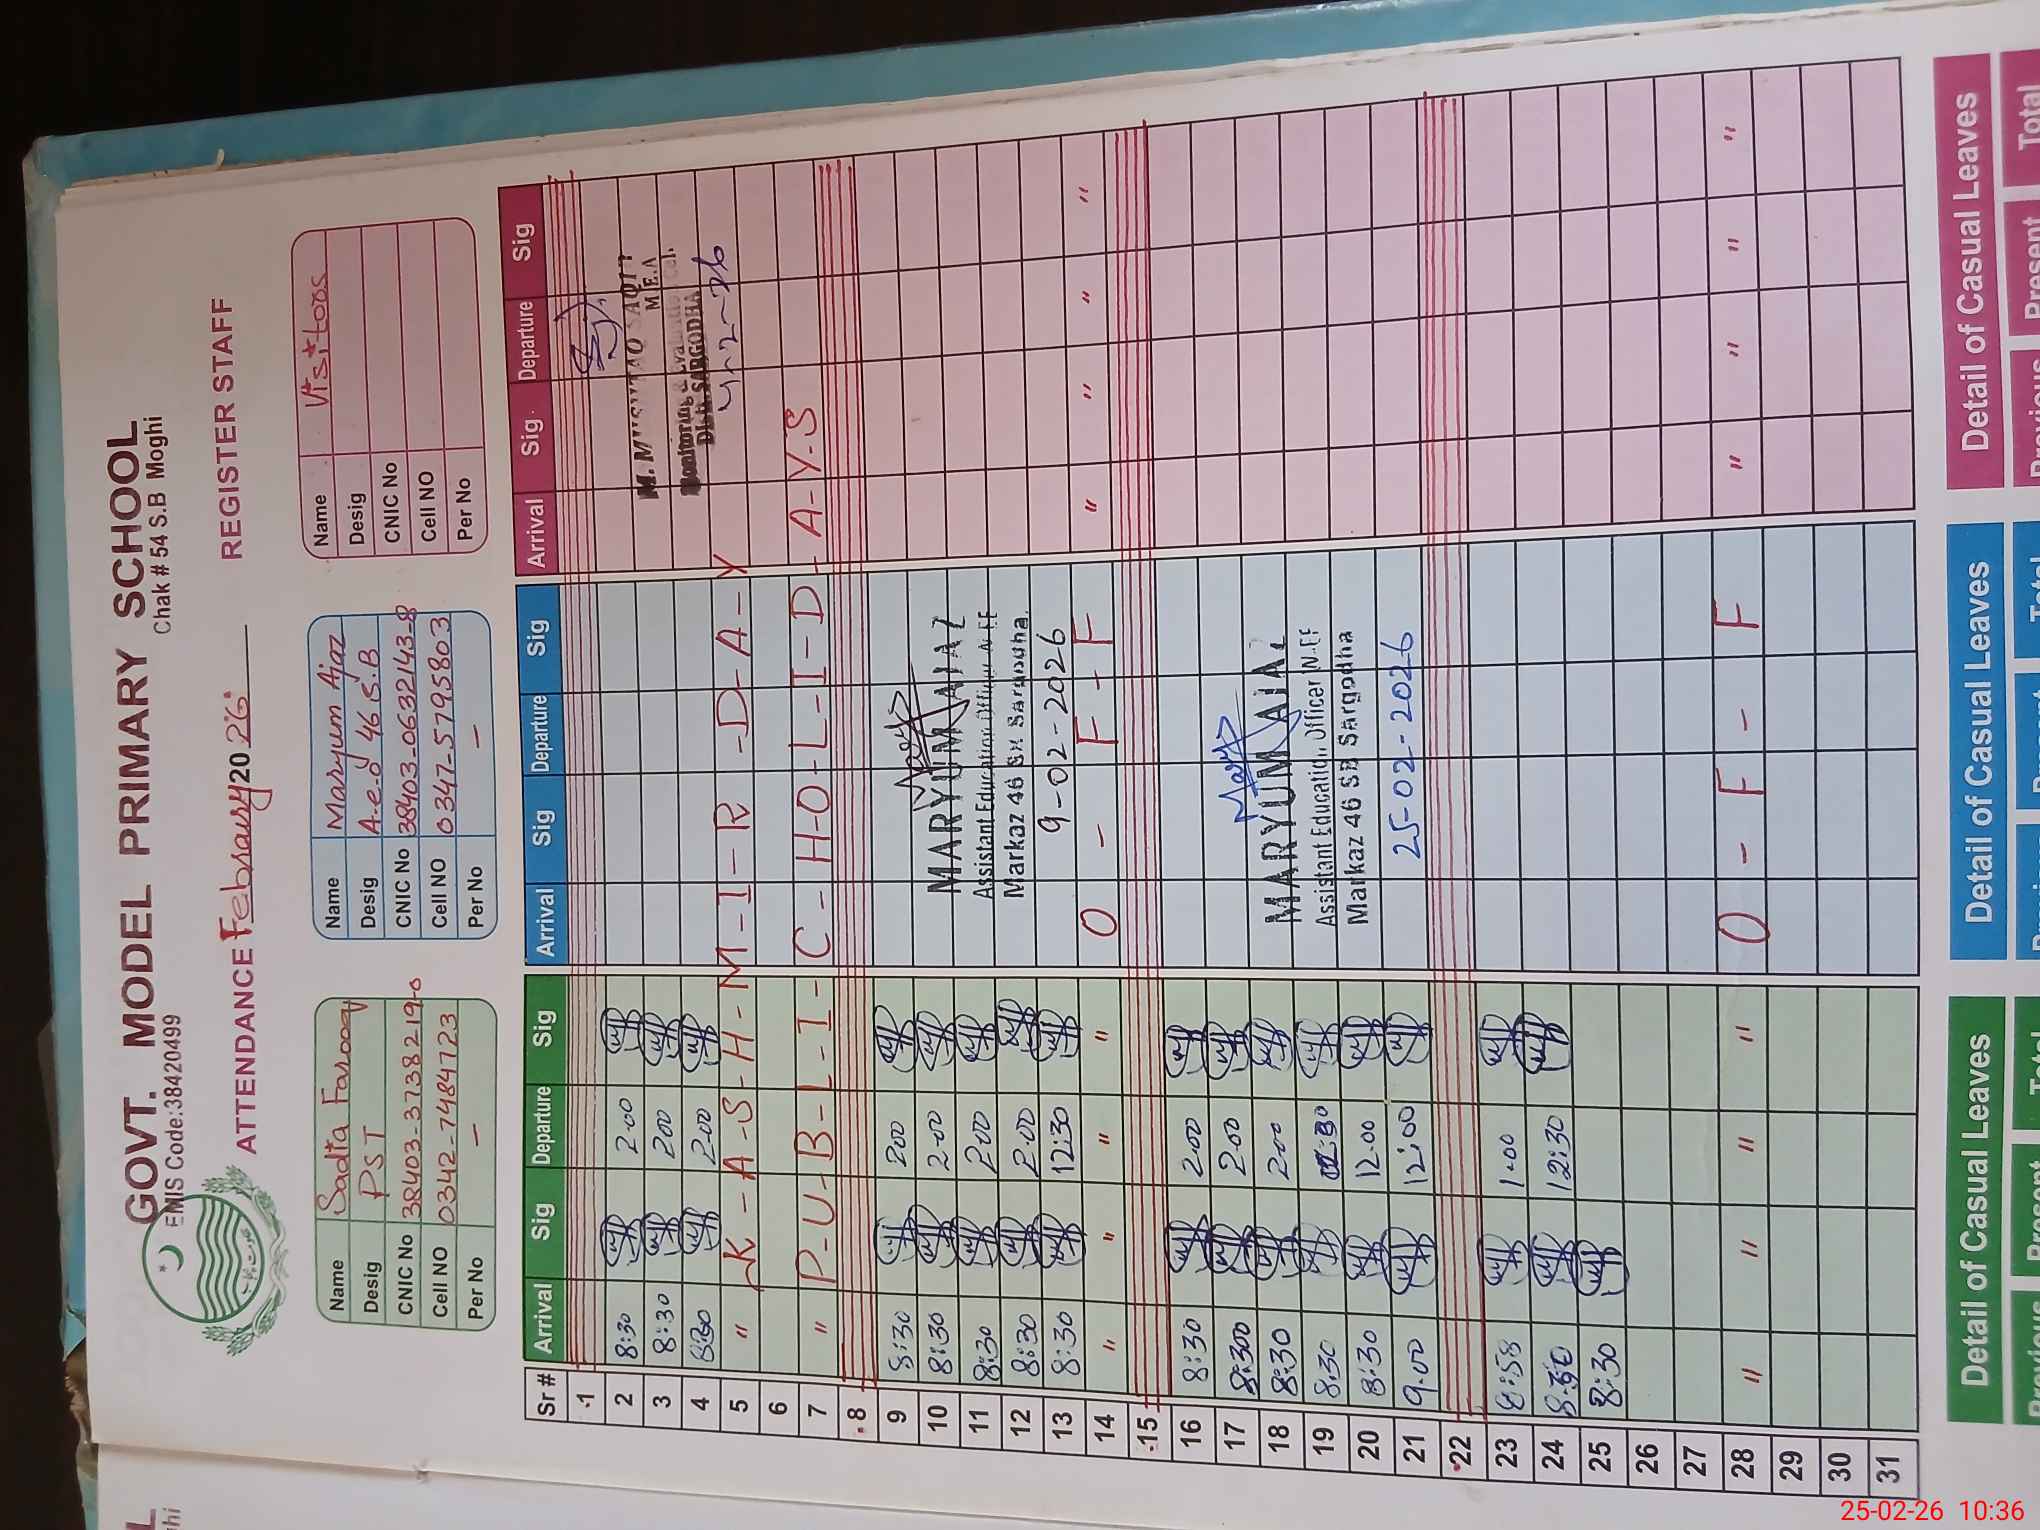 GOVT. MODEL PRIMARY SCHOOL
EMIS Code:38420499
Chak # 54 S.B Moghi
ATTENDANCE February 2026. REGISTER STAFF
Name Sadia Farooq
Desig PST
CNIC No 38403-3738219-0
Cell NO 0342-7484723
Per No —
Name Maryum Ajaz
Desig A-e-o 46 S.B
CNIC No 38403-0632143-8
Cell NO 0347-5795803
Per No —
Name Visitors
Desig
CNIC No
Cell NO
Per No
Sr # Arrival Sig Departure Sig Arrival Sig Departure Sig Arrival Sig Departure Sig
1
2 8:30 2:00
3 8:30 2:00 M. MUSHTAQ
M.E.A
4 8:30 2:00 Monitoring &
DISTT. SARGODHA
5 " K-A-S-H-M-I-R-D-A-Y 4-2-26
6
7 " P-U-B-L-I-C-H-O-L-I-D-A-Y-S
8
9 8:30 2:00
10 8:30 2:00 MARYUM AJAZ
11 8:30 2:00 Assistant Education Officer
12 8:30 2:00 Markaz 46 SB Sargodha
13 8:30 12:30 9-02-2026
14 " " " " O - F - F " " " "
15
16 8:30 2:00
17 8:30 2:00
18 8:30 2:00 MARYUM AJAZ
19 8:30 Assistant Education Officer
20 8:30 12:00 Markaz 46 SB Sargodha
21 9:00 12:00 25-02-2026
22
23 8:58 1:00
24 12:30
25 8:30
26
27
28 " " " " O - F - F " " " "
29
30
31
Detail of Casual Leaves Detail of Casual Leaves Detail of Casual Leaves
Previous Present Total
25-02-26 10:36